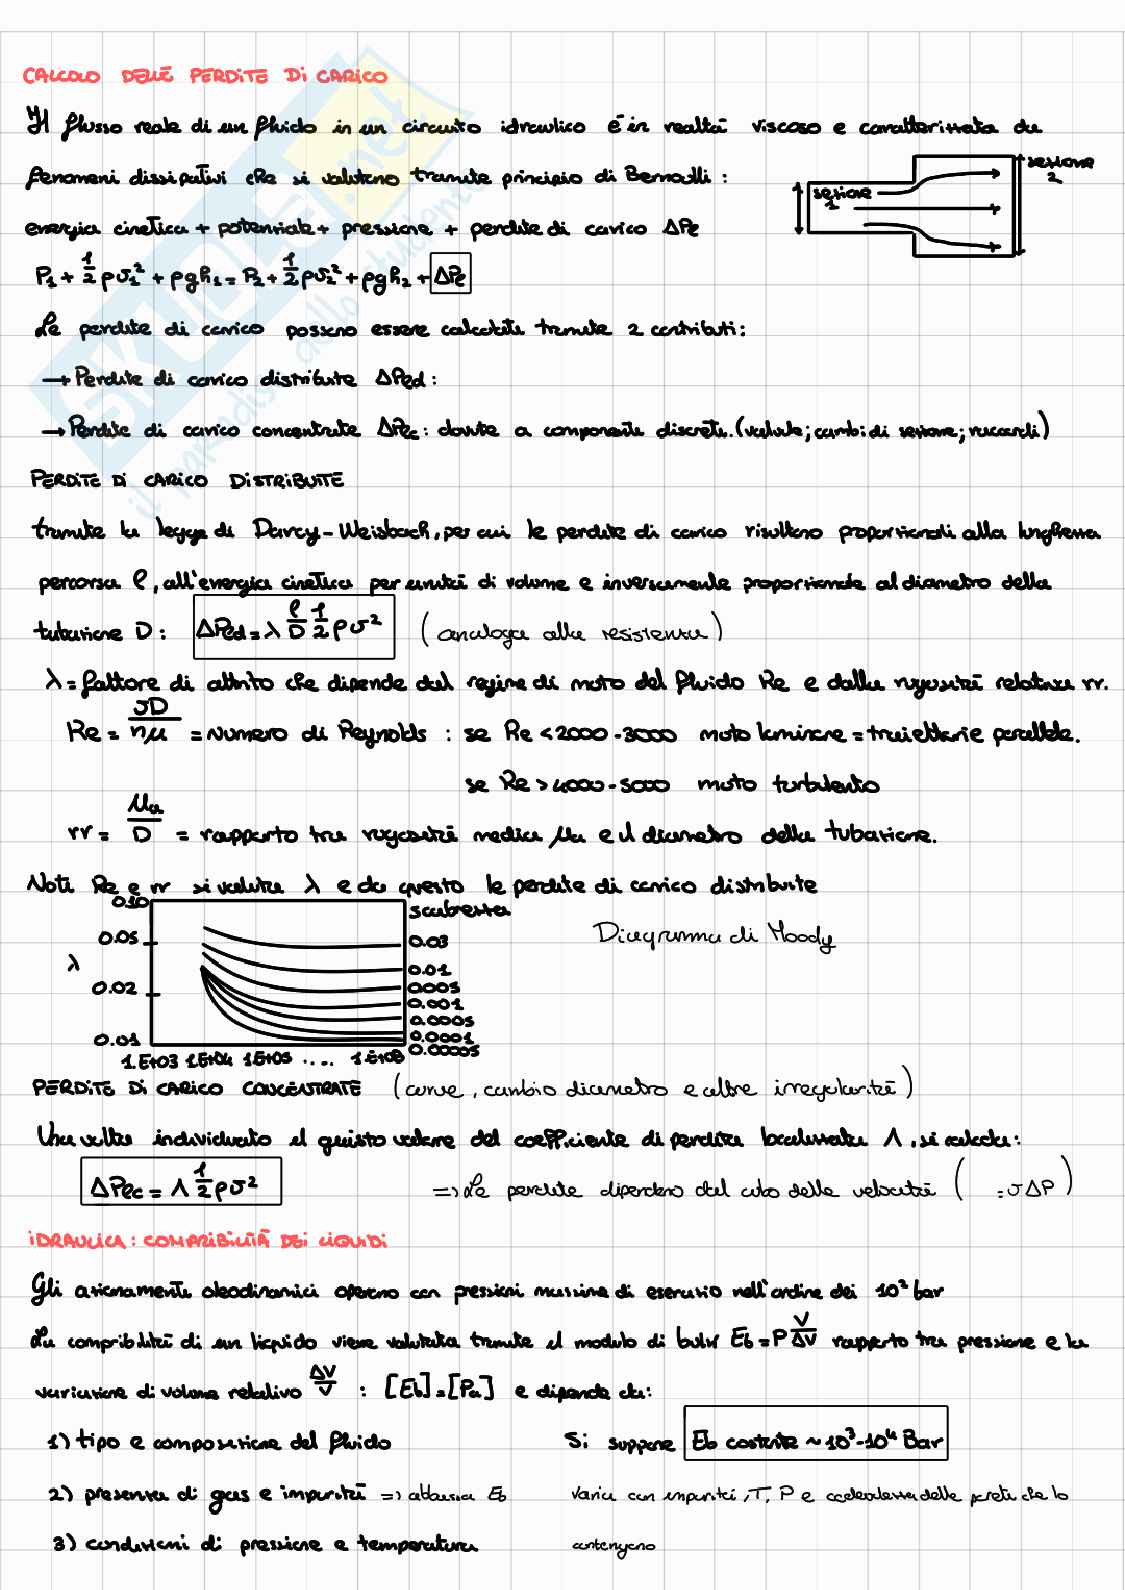 CALCOLO DELLE PERDITE DI CARICO
Il flusso reale di un fluido in un circuito idraulico è in realtà viscoso e caratterizzata da
fenomeni dissipativi che si valutano tramite principio di Bernoulli :
sezione 1
sezione 2
energia cinetica + potenziale + pressione + perdite di carico ΔPe
P₁ + 1/2 ρv₁² + ρgh₁ = P₂ + 1/2 ρv₂² + ρgh₂ + ΔPe
Le perdite di carico possono essere calcolate tramite 2 contributi :
→ Perdite di carico distribuite ΔPed :
→ Perdite di carico concentrate ΔPec : dovute a componenti discrete. (valvole; cambi di sezione; raccordi)
PERDITE DI CARICO DISTRIBUITE
tramite la legge di Darcy - Weisbach, per cui le perdite di carico risultano proporzionali alla lunghezza
percorsa l, all'energia cinetica per unità di volume e inversamente proporzionale al diametro della
tubazione D : ΔPed = λ l/D 1/2 ρv² (analoga alla resistenza)
λ = fattore di attrito che dipende dal regime di moto del fluido Re e dalla rugosità relativa rr.
Re = vD/nμ = numero di Reynolds : se Re < 2000 - 3000 moto laminare = traiettorie parallele.
se Re > 4000 - 5000 moto turbolento
rr = μa/D = rapporto tra rugosità media μa e il diametro della tubazione.
Noti Re e rr si valuta λ e da questo le perdite di carico distribuite
0.10
0.05
λ
0.02
0.01
1.E+03 1.E+04 1.E+05 .... 1.E+08
scabrezza
0.03
0.01
0.005
0.001
0.0005
0.0001
0.00005
Diagramma di Moody
PERDITE DI CARICO CONCENTRATE (curve, cambio diametro e altre irregolarità)
Una volta individuato il giusto valore del coefficiente di perdita localizzata Λ, si calcola :
ΔPec = Λ 1/2 ρv² => Le perdite dipendono dal cubo della velocità ( = vΔP )
IDRAULICA : COMPRIBILITÀ DEI LIQUIDI
Gli azionamenti oleodinamici operano con pressioni massime di esercizio nell'ordine dei 10² bar
La compribilità di un liquido viene valutata tramite il modulo di bulk Eb = P V/ΔV rapporto tra pressione e la
variazione di volume relativo ΔV/V : [Eb] = [Pa] e dipende da :
1) tipo e composizione del fluido
Si suppone Eb costante ~ 10³ - 10⁴ Bar
2) presenza di gas e impurità => abbassa Eb
Varia con impurità, T, P e cedevolezza delle pareti che lo
contengono
3) condizioni di pressione e temperatura
SKUOLA.net
il paradiso dello studente